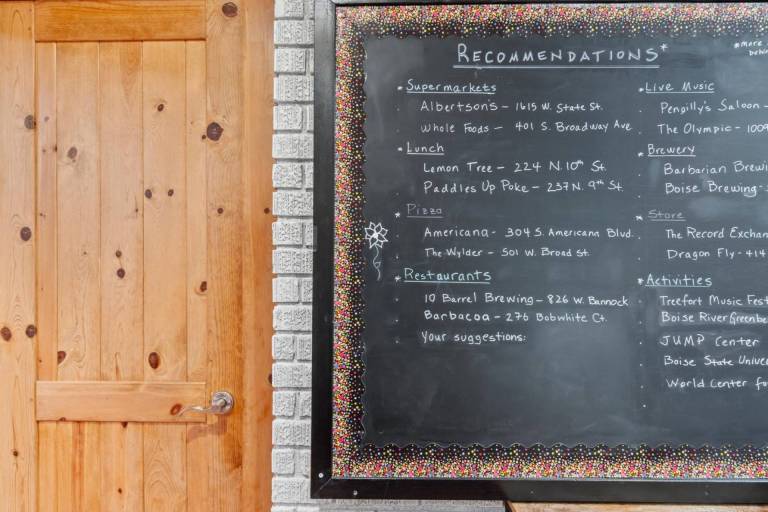 RECOMMENDATIONS*
*more
behin
* Supermarkets
Albertson's - 1615 W. State St.
Whole Foods - 401 S. Broadway Ave.
* Lunch
Lemon Tree - 224 N. 10th St.
Paddles Up Poke - 237 N. 9th St.
* Pizza
Americana - 304 S. Americana Blvd.
The Wylder - 501 W. Broad St.
* Restaurants
10 Barrel Brewing - 826 W. Bannock
Barbacoa - 276 Bobwhite Ct.
Your suggestions:
* Live Music
Pengilly's Saloon -
The Olympic - 1009
* Brewery
Barbarian Brewi
Boise Brewing -
* Store
The Record Exchan
Dragon Fly - 414
* Activities
Treefort Music Fest
Boise River Greenbe
JUMP Center
Boise State Univer
World Center fo